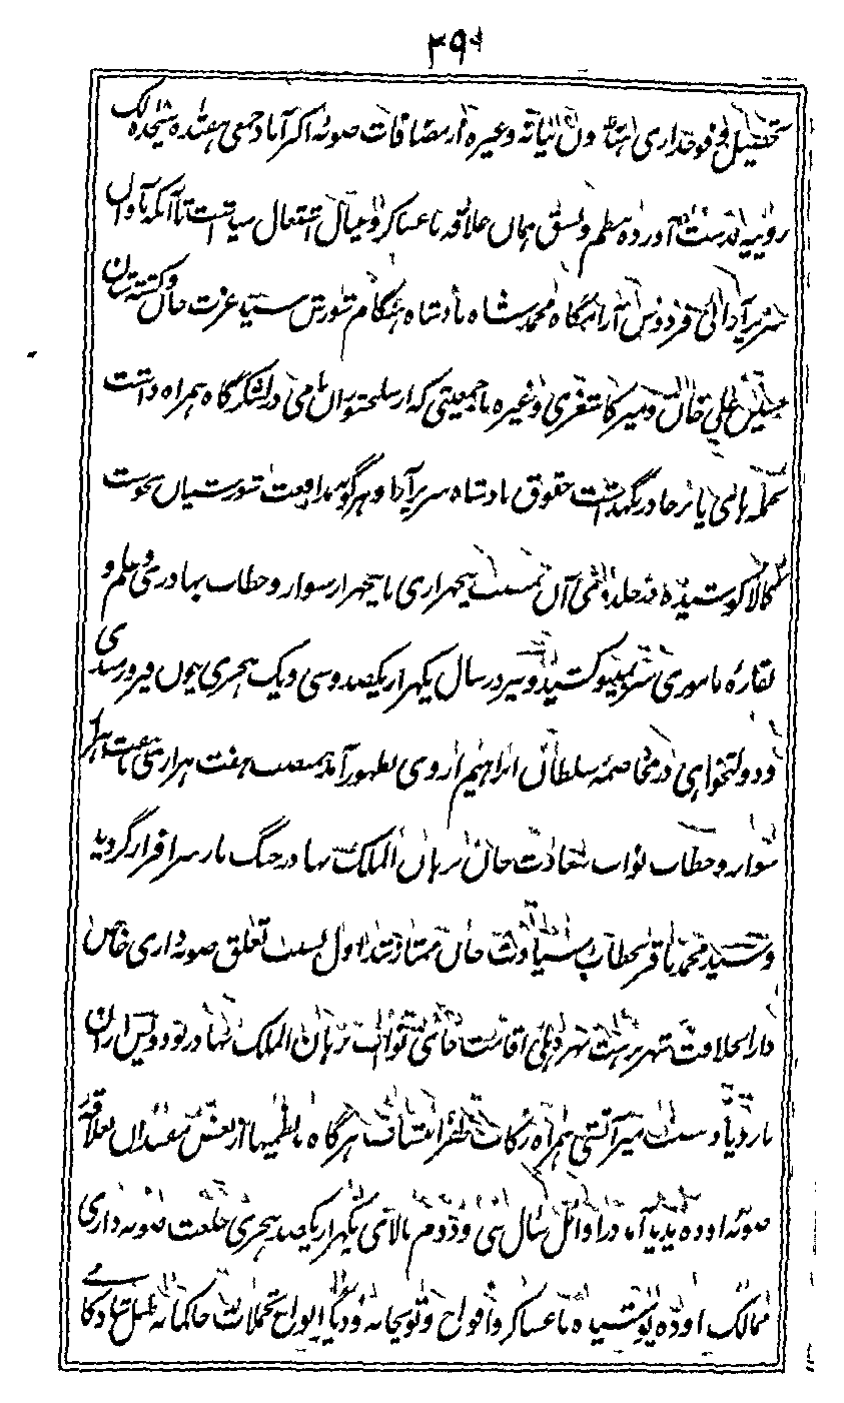 ۳۹۶
تحصیل و فوجداری هندون بیانه وغیره از مضافات صوبه اکبرآباد جمعی هفتده هیجده لک
روپیه بدست آورده بنظم و نسق همان علاقه با عساکر و عیال اشتغال میداشت تا آنکه باوان
سریرآرائی فردوس آرامگاه محمد شاه بادشاه هنگام شورش سید عزت خان و کشته شدن
حسین علی خان و میر کاشغری وغیره با جمعیتی که از سلحشوران نامی در لشکرگاه همراه داشت
حمله های پا برجا در نگهداشت حقوق بادشاه سریرآرا و هرگونه مدافعت شورشیان بوجوه
کالا کوشیده بجلدوی آن بمنصب پنجهزاری پنجهزار سوار و خطاب بهادری و علم و
نقاره ناموری سر بعیوق کشید و نیز در سال یکهزار یکصد و سی و یک هجری چون فیروزمندی
و دولتخواهی در مخاصمه سلطان ابراهیم از وی بظهور آمد بمنصب هفت هزاری با هفت هزار
سوار و خطاب نواب سعادت خان برهان الملک بهادر جنگ باز سرافراز گردید
و سید محمد باقر بخطاب سیادت خان ممتاز شد اول بسبب تعلق صوبه داری خاص
دارالخلافت شهر بهشت بهر دهلی اقامت جای نواب برهان الملک بهادر بود و پس ازان
بار دیگر و سبب میر آتشی همراه رکاب ظفر انتساب هرگاه بطمیها از بعض مفسدان بعلاقه
صوبه اوده پدید آمد در اوائل سال سی و دوم بالای یکهزار یکصد هجری خلعت صوبه داری
ممالک اوده پوشیده با عساکر و افواج و توپخانه و دیگر انواع تحملات حاکمانه طبل شادکامی